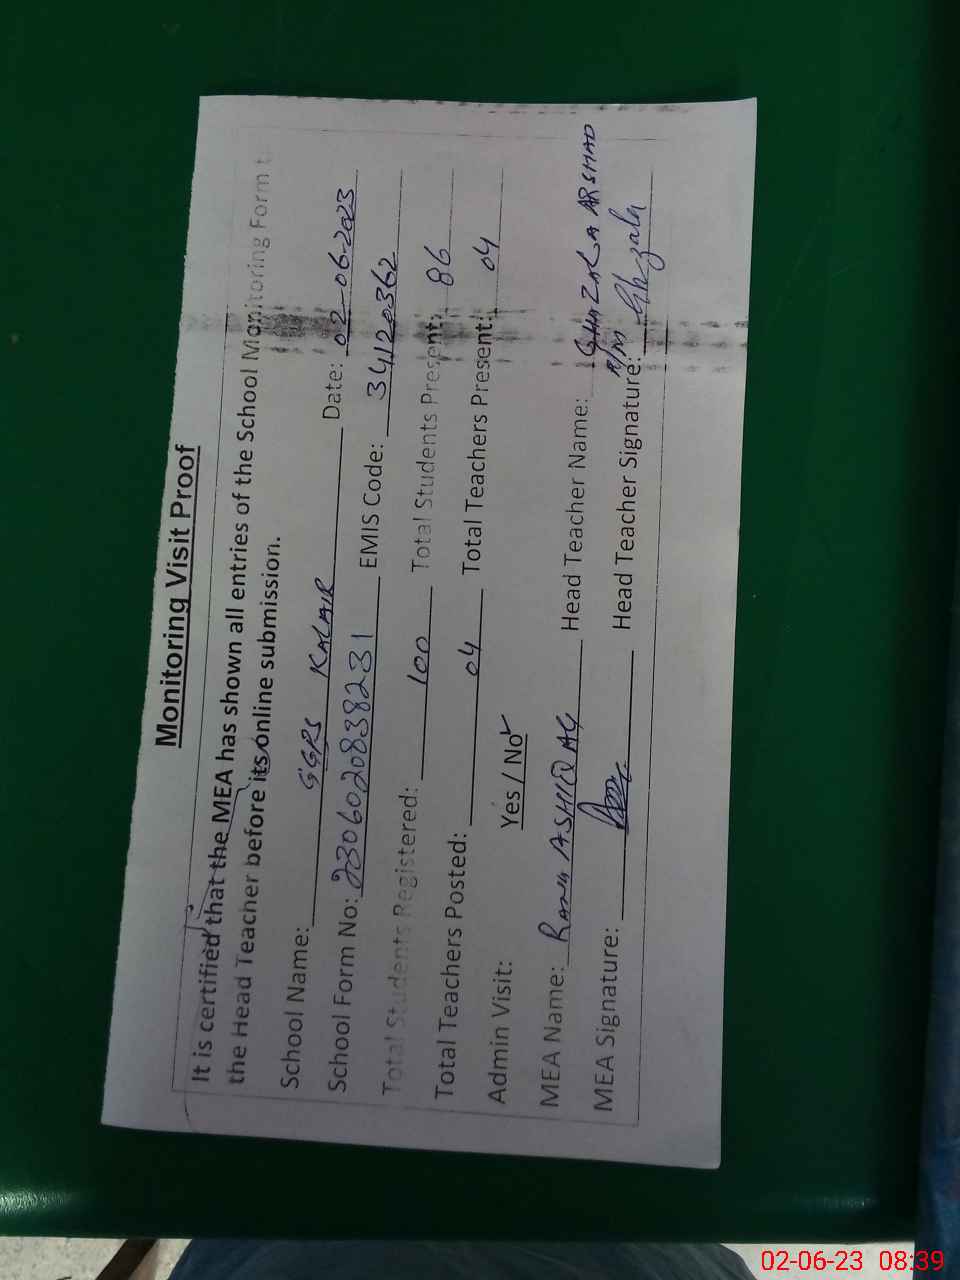 Monitoring Visit Proof
It is certified that the MEA has shown all entries of the School Monitoring Form t
the Head Teacher before its online submission.
School Name: GGPS KALAIR Date: 02-06-2023
School Form No: 2306020838231 EMIS Code: 34120362
Total Students Registered: 100 Total Students Present: 86
Total Teachers Posted: 04 Total Teachers Present: 04
Admin Visit: Yes / No
MEA Name: RANA ASHFAQ Head Teacher Name: GHAZALA ARSHAD
MEA Signature: Head Teacher Signature: Ghzala
02-06-23 08:39